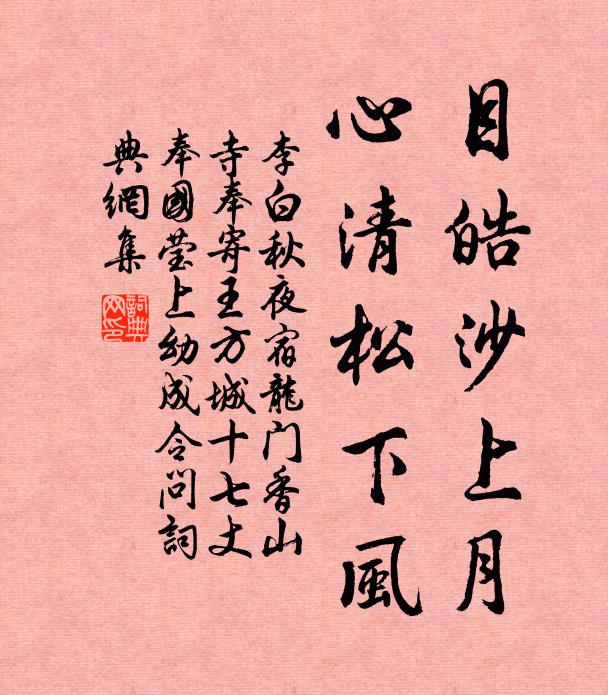 目皓沙上月
心清松下風
李白秋夜宿龍门香山
寺奉寄王方城十七丈
奉國莹上幼成令问詞
典網集
詞典
网印